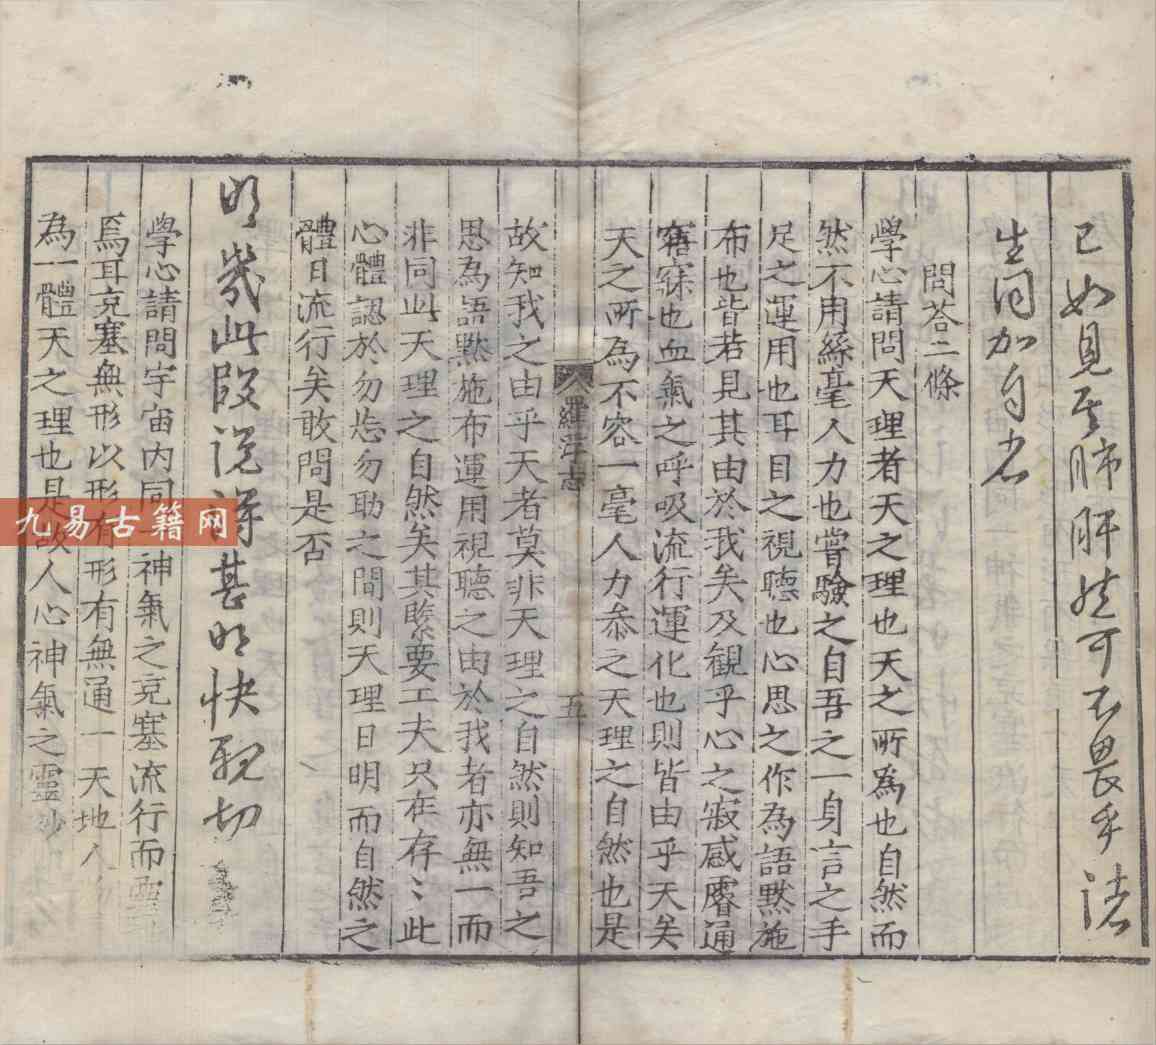 已如見其肺肝然可不畏乎諸
生同加自省
問荅二條
學心請問天理者天之理也天之所為也自然而
然不用絲毫人力也嘗驗之自吾之一身言之手
足之運用也耳目之視聽也心思之作為語默施
布也皆若見其由於我矣及観乎心之寂感睿通
寤寐也血氣之呼吸流行運化也則皆由乎天矣
天之所為不容一毫人力叅之天理之自然也是
羅浮志
五
故知我之由乎天者莫非天理之自然則知吾之
思為語默施布運用視聽之由於我者亦無一而
非同此天理之自然矣其緊要工夫只在存〻此
心體認於勿忘勿助之間則天理日明而自然之
體日流行矣敢問是否
明幾此段說得甚明快親切
學心請問宇宙内同一神氣之充塞流行而
焉耳充塞無形以形有形有無通一天地人
為一體天之理也是故人心神氣之靈妙
九易古籍网